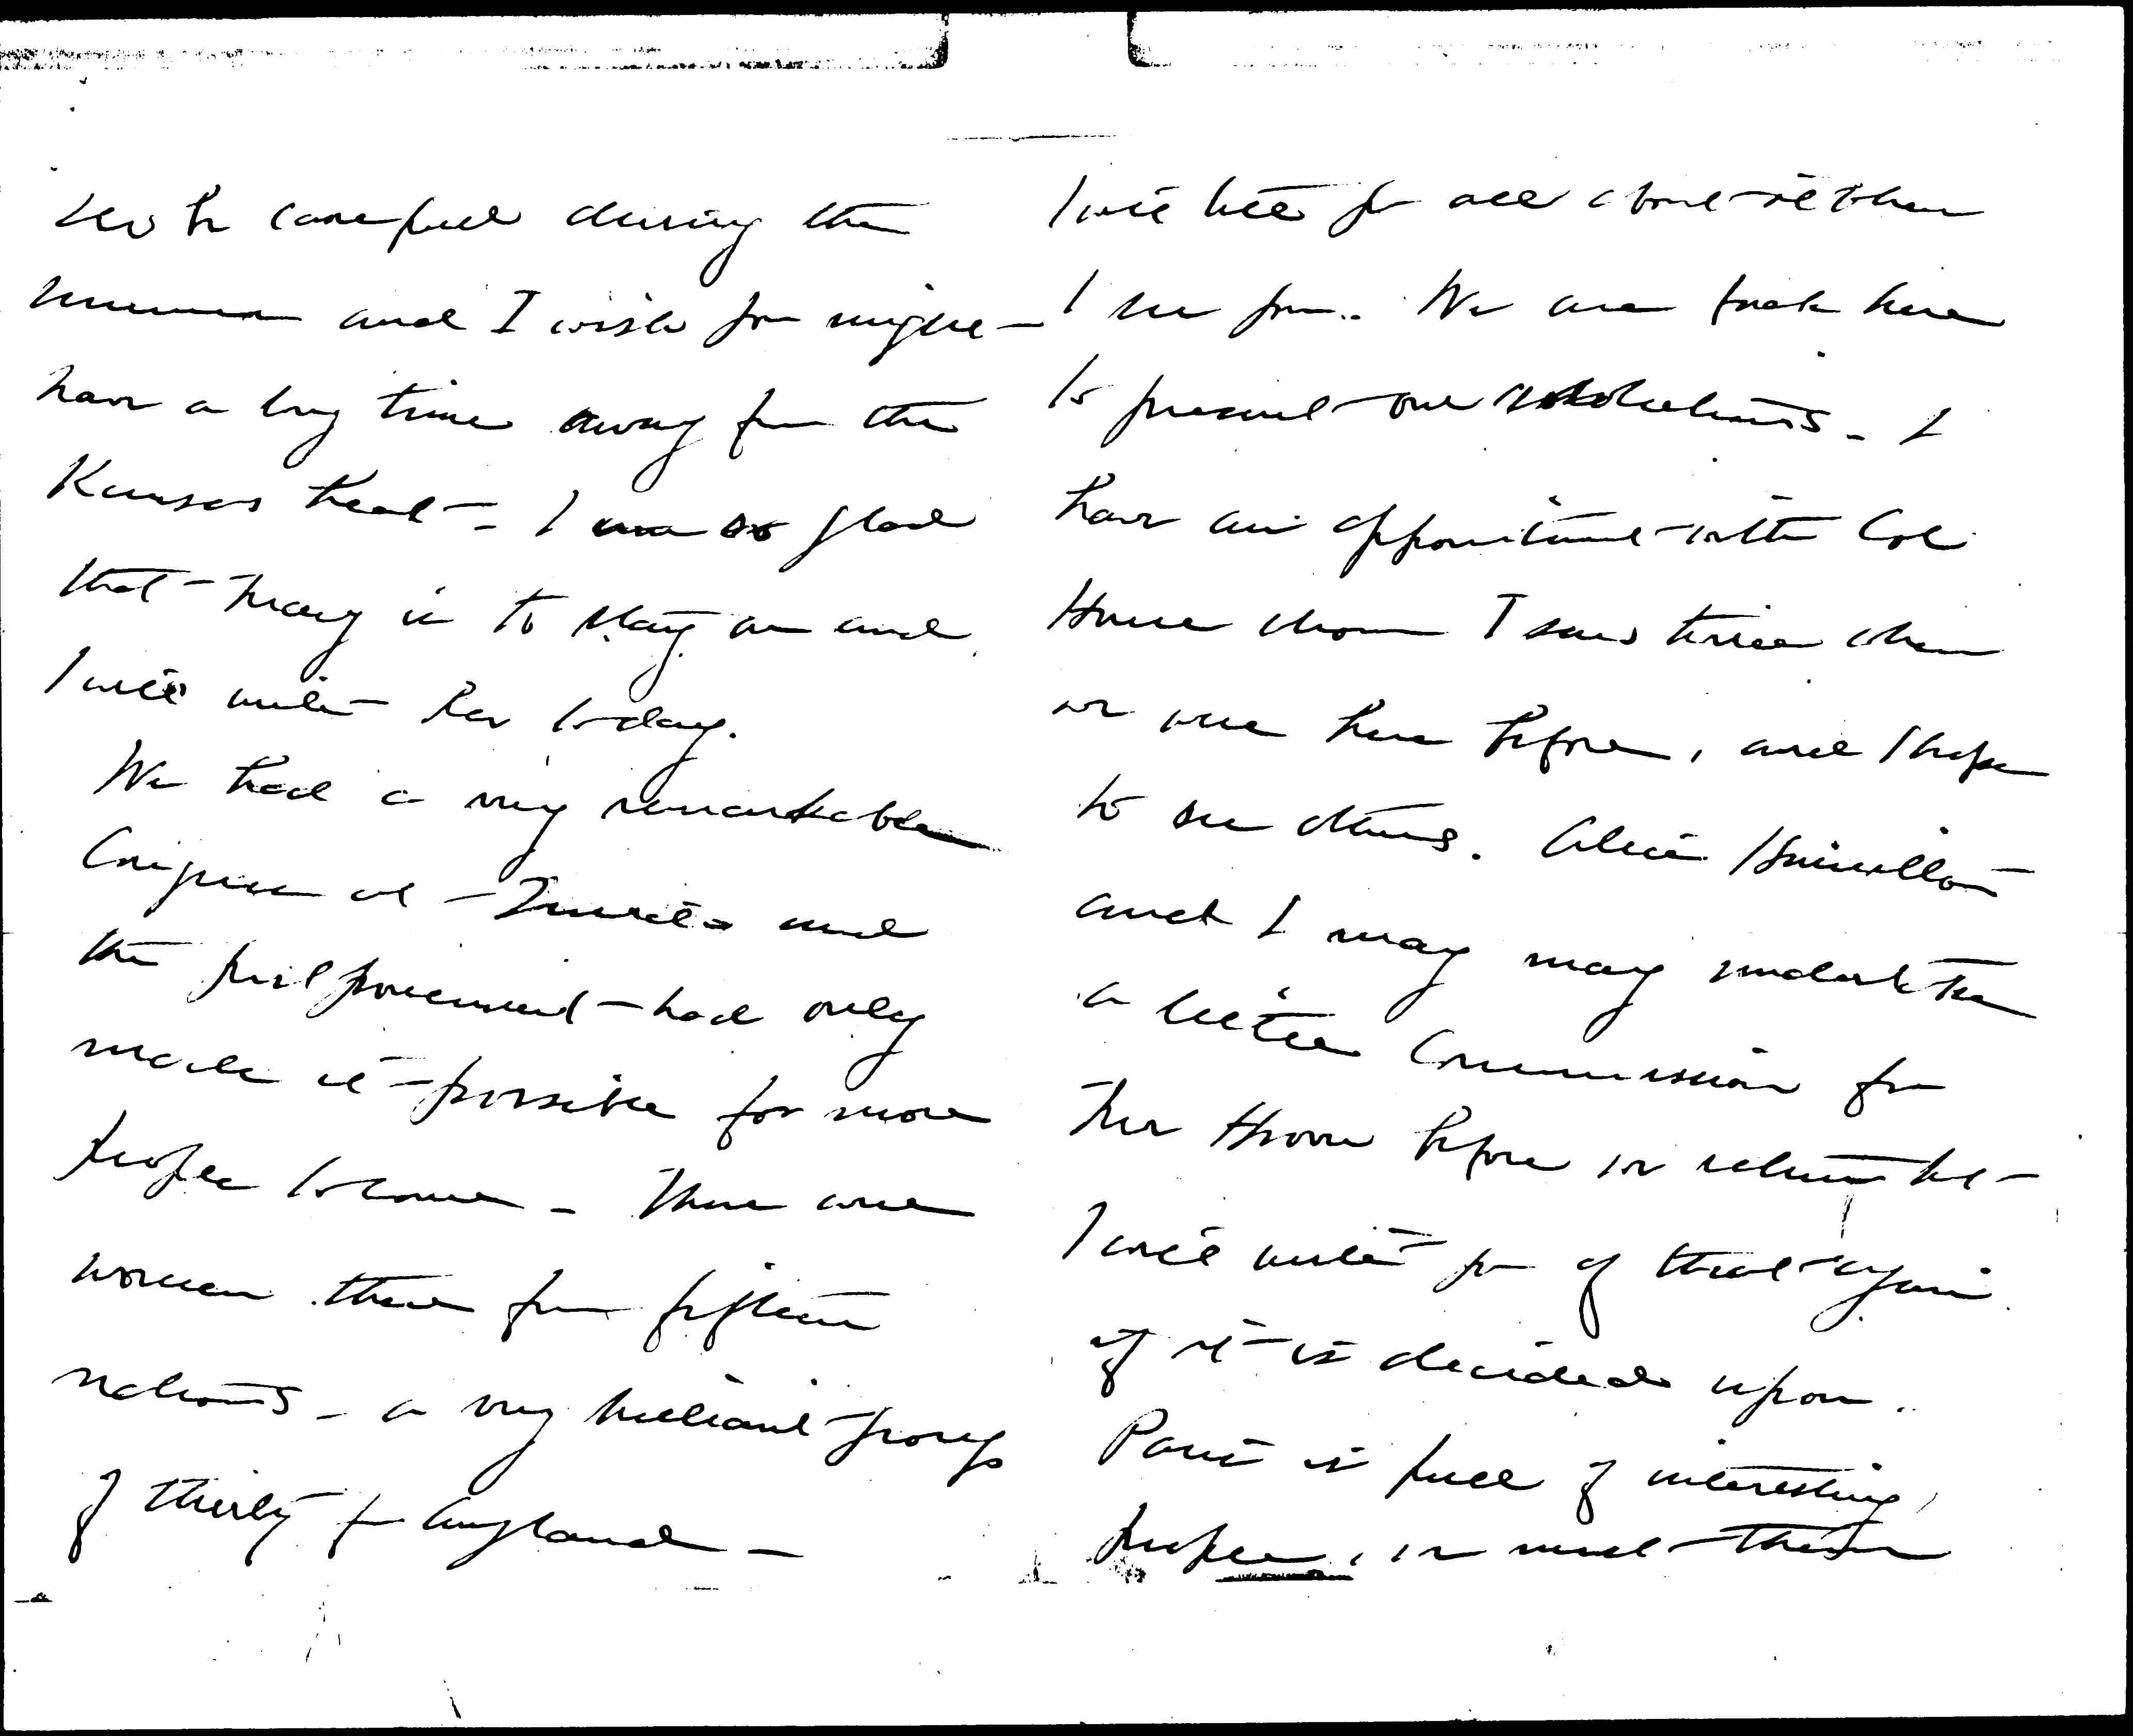 do be careful during the
summer and I wish you might
have a long time away from the
Kansas heat - I am so glad
that Mary is to stay on and
I will write her to-day.
We had a very remarkable
Congress at Zurich and
the postponement had only
made it possible for more
people to come - There were
women there from fifteen
nations - a very brilliant group
of thirty from England -
I will tell you all about it when
I see you. We are back here
to present our resolutions - I
have an appointment with Col
House whom I saw twice when
we were here before, and I hope
to see others. Alice Hamilton
and I may may undertake
a little Commission for
Mr Hoover before we return but
I will write you of that again
if it is decided upon.
Paris is full of interesting
people, we meet them